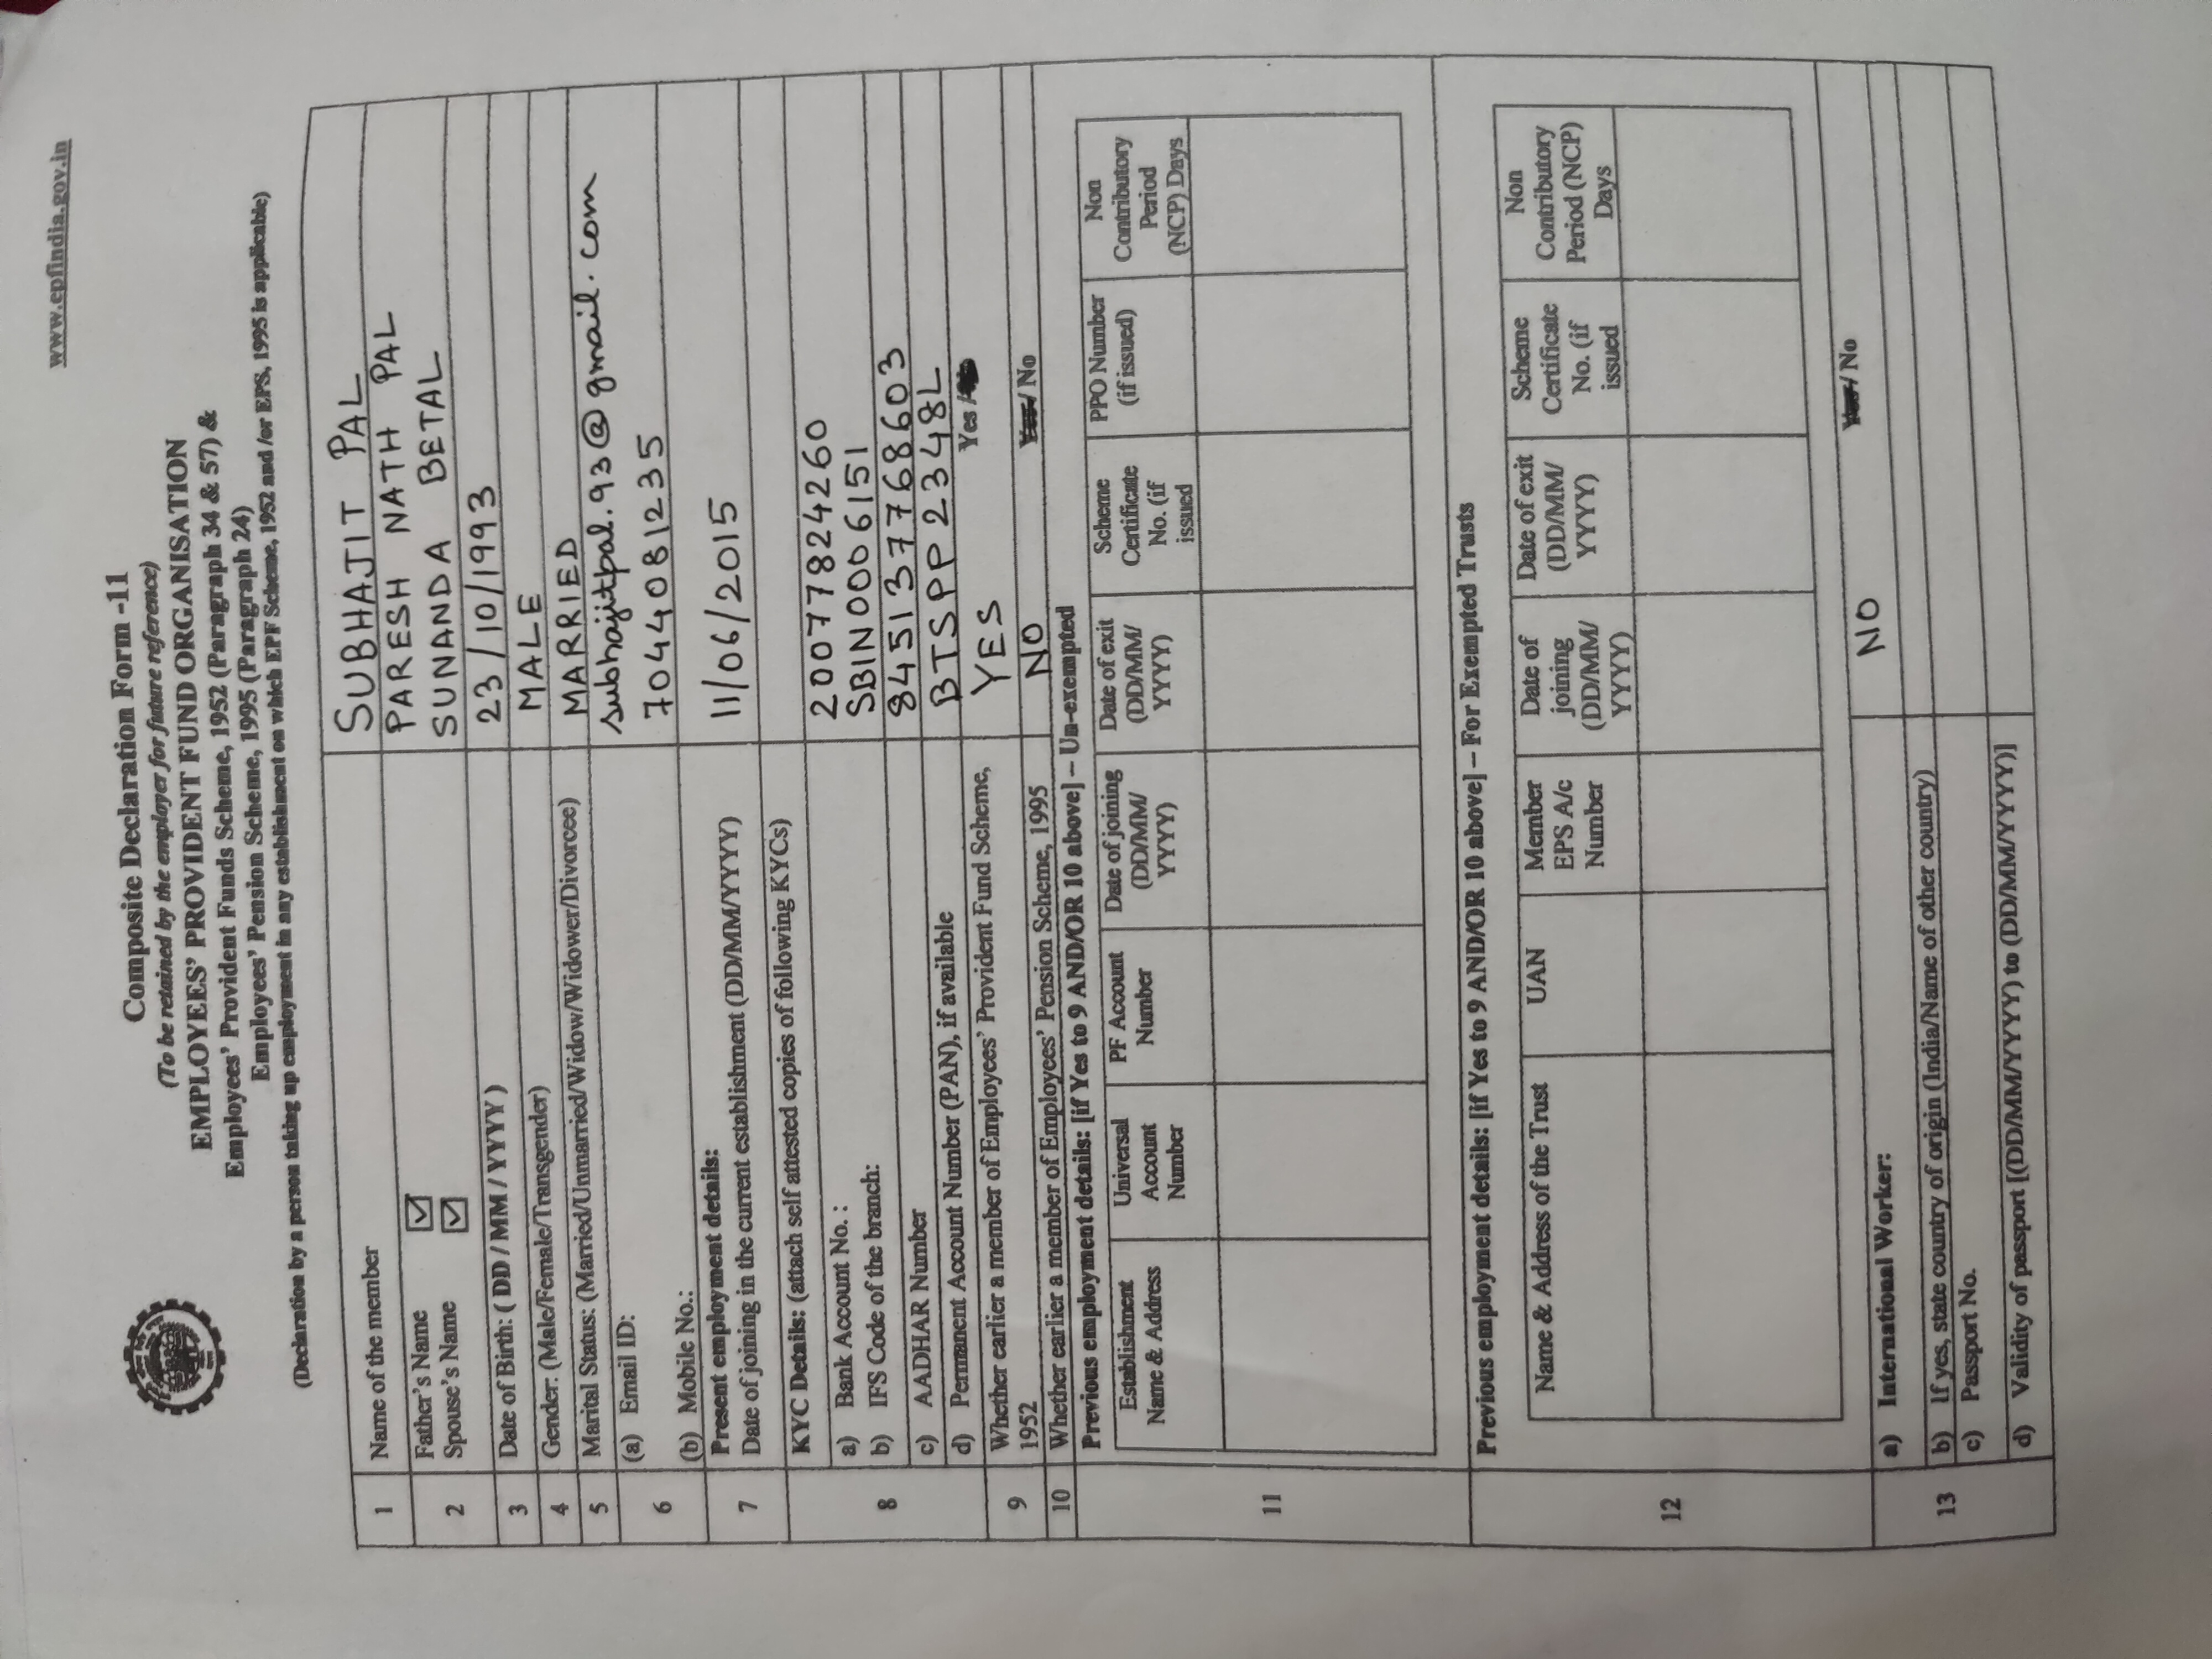 www.epfindia.gov.in
Composite Declaration Form -11
(To be retained by the employer for future reference)
EMPLOYEES' PROVIDENT FUND ORGANISATION
Employees' Provident Funds Scheme, 1952 (Paragraph 34 & 57) &
Employees' Pension Scheme, 1995 (Paragraph 24)
(Declaration by a person taking up employment in any establishment on which EPF Scheme, 1952 and /or EPS, 1995 is applicable)
1 Name of the member SUBHAJIT PAL
2 Father's Name ☑ PARESH NATH PAL
Spouse's Name ☑ SUNANDA BETAL
3 Date of Birth: ( DD / MM / YYYY ) 23/10/1993
4 Gender: (Male/Female/Transgender) MALE
5 Marital Status: (Married/Unmarried/Widow/Widower/Divorcee) MARRIED
6 (a) Email ID: subhajitpal.93@gmail.com
(b) Mobile No.: 7044081235
7 Present employment details:
Date of joining in the current establishment (DD/MM/YYYY) 11/06/2015
8 KYC Details: (attach self attested copies of following KYCs)
a) Bank Account No. : 20077824260
b) IFS Code of the branch: SBIN0006151
c) AADHAR Number 845137768603
d) Permanent Account Number (PAN), if available BTSPP2348L
9 Whether earlier a member of Employees' Provident Fund Scheme, 1952 YES Yes /
10 Whether earlier a member of Employees' Pension Scheme, 1995 NO Yes/ No
11 Previous employment details: [if Yes to 9 AND/OR 10 above] – Un-exempted
Establishment Name & Address
Universal Account Number
PF Account Number
Date of joining (DD/MM/YYYY)
Date of exit (DD/MM/YYYY)
Scheme Certificate No. (if issued
PPO Number (if issued)
Non Contributory Period (NCP) Days
12 Previous employment details: [if Yes to 9 AND/OR 10 above] – For Exempted Trusts
Name & Address of the Trust
UAN
Member EPS A/c Number
Date of joining (DD/MM/YYYY)
Date of exit (DD/MM/YYYY)
Scheme Certificate No. (if issued
Non Contributory Period (NCP) Days
13 a) International Worker: NO Yes/ No
b) If yes, state country of origin (India/Name of other country)
c) Passport No.
d) Validity of passport [(DD/MM/YYYY) to (DD/MM/YYYY)]